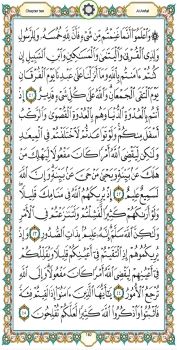 Chapter ten
Al-Anfal
۞ وَٱعْلَمُوٓا۟ أَنَّمَا غَنِمْتُم مِّن شَىْءٍ فَأَنَّ لِلَّهِ خُمُسَهُۥ وَلِلرَّسُولِ
وَلِذِى ٱلْقُرْبَىٰ وَٱلْيَتَـٰمَىٰ وَٱلْمَسَـٰكِينِ وَٱبْنِ ٱلسَّبِيلِ إِن
كُنتُمْ ءَامَنتُم بِٱللَّهِ وَمَآ أَنزَلْنَا عَلَىٰ عَبْدِنَا يَوْمَ ٱلْفُرْقَانِ
يَوْمَ ٱلْتَقَى ٱلْجَمْعَانِ وَٱللَّهُ عَلَىٰ كُلِّ شَىْءٍ قَدِيرٌ ٤١ إِذْ
أَنتُم بِٱلْعُدْوَةِ ٱلدُّنْيَا وَهُم بِٱلْعُدْوَةِ ٱلْقُصْوَىٰ وَٱلرَّكْبُ
أَسْفَلَ مِنكُمْ وَلَوْ تَوَاعَدتُّمْ لَٱخْتَلَفْتُمْ فِى ٱلْمِيعَـٰدِ
وَلَـٰكِن لِّيَقْضِىَ ٱللَّهُ أَمْرًا كَانَ مَفْعُولًا لِّيَهْلِكَ مَنْ
هَلَكَ عَنۢ بَيِّنَةٍ وَيَحْيَىٰ مَنْ حَىَّ عَنۢ بَيِّنَةٍ وَإِنَّ ٱللَّهَ
لَسَمِيعٌ عَلِيمٌ ٤٢ إِذْ يُرِيكَهُمُ ٱللَّهُ فِى مَنَامِكَ قَلِيلًا
وَلَوْ أَرَىٰكَهُمْ كَثِيرًا لَّفَشِلْتُمْ وَلَتَنَـٰزَعْتُمْ فِى ٱلْأَمْرِ
وَلَـٰكِنَّ ٱللَّهَ سَلَّمَ إِنَّهُۥ عَلِيمٌۢ بِذَاتِ ٱلصُّدُورِ ٤٣ وَإِذْ
يُرِيكُمُوهُمْ إِذِ ٱلْتَقَيْتُمْ فِىٓ أَعْيُنِكُمْ قَلِيلًا وَيُقَلِّلُكُمْ
فِىٓ أَعْيُنِهِمْ لِيَقْضِىَ ٱللَّهُ أَمْرًا كَانَ مَفْعُولًا وَإِلَى ٱللَّهِ
تُرْجَعُ ٱلْأُمُورُ ٤٤ يَـٰٓأَيُّهَا ٱلَّذِينَ ءَامَنُوٓا۟ إِذَا لَقِيتُمْ فِئَةً
فَٱثْبُتُوا۟ وَٱذْكُرُوا۟ ٱللَّهَ كَثِيرًا لَّعَلَّكُمْ تُفْلِحُونَ ٤٥